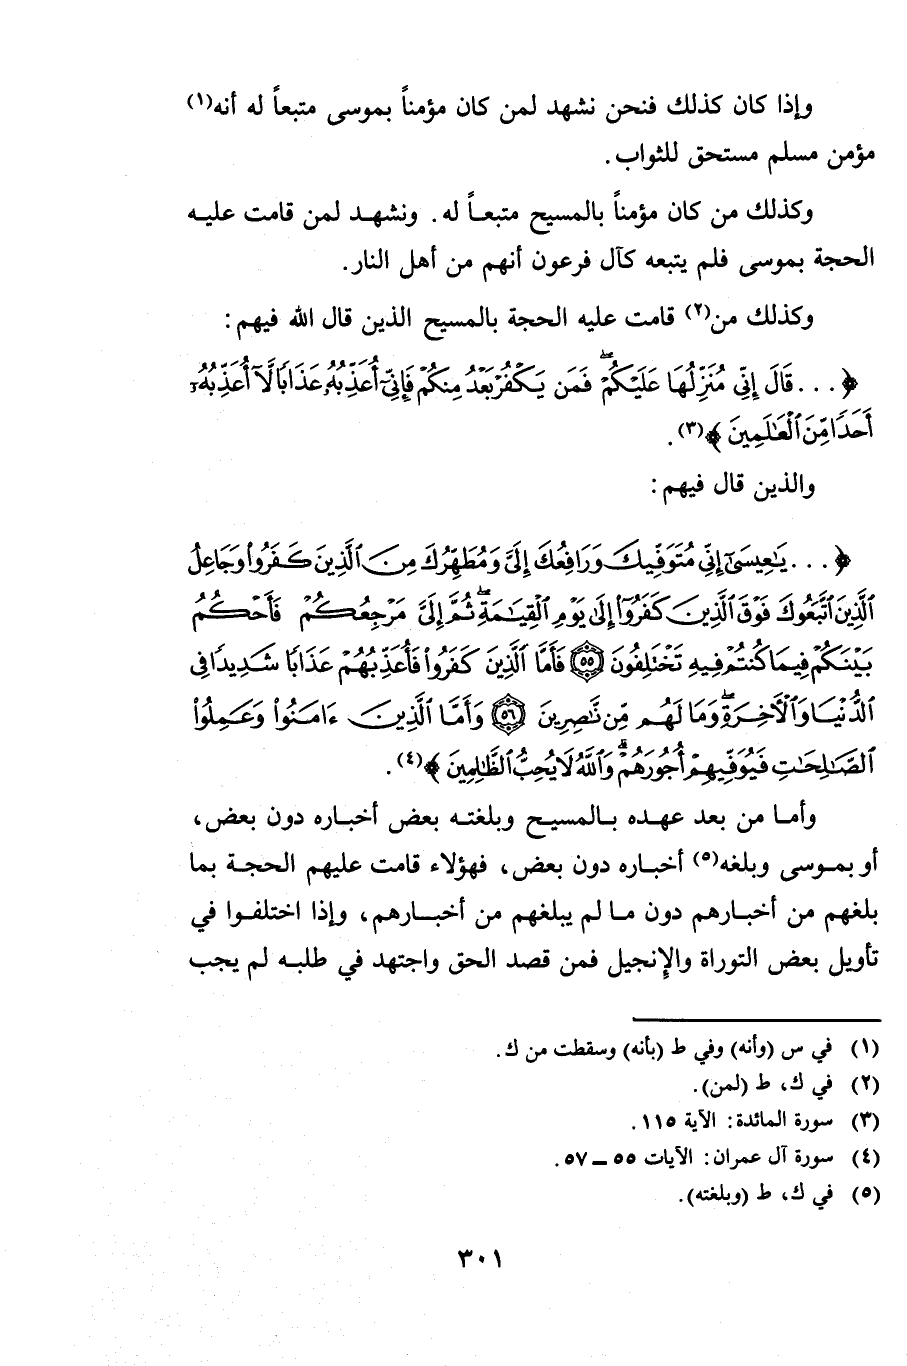 وإذا كان كذلك فنحن نشهد لمن كان مؤمناً بموسى متبعاً له أنه(١)
مؤمن مسلم مستحق للثواب.
وكذلك من كان مؤمناً بالمسيح متبعاً له. ونشهد لمن قامت عليه
الحجة بموسى فلم يتبعه كآل فرعون أنهم من أهل النار.
وكذلك من(٢) قامت عليه الحجة بالمسيح الذين قال الله فيهم:
﴿... قَالَ إِنِّي مُنَزِّلُهَا عَلَيْكُمْۖ فَمَن يَكْفُرْ بَعْدُ مِنكُمْ فَإِنِّيٓ أُعَذِّبُهُۥ عَذَابًا لَّآ أُعَذِّبُهُۥٓ
أَحَدًا مِّنَ ٱلْعَٰلَمِينَ﴾(٣).
والذين قال فيهم:
﴿... يَٰعِيسَىٰٓ إِنِّي مُتَوَفِّيكَ وَرَافِعُكَ إِلَيَّ وَمُطَهِّرُكَ مِنَ ٱلَّذِينَ كَفَرُوا۟ وَجَاعِلُ
ٱلَّذِينَ ٱتَّبَعُوكَ فَوْقَ ٱلَّذِينَ كَفَرُوٓا۟ إِلَىٰ يَوْمِ ٱلْقِيَٰمَةِۖ ثُمَّ إِلَيَّ مَرْجِعُكُمْ فَأَحْكُمُ
بَيْنَكُمْ فِيمَا كُنتُمْ فِيهِ تَخْتَلِفُونَ ٥٥ فَأَمَّا ٱلَّذِينَ كَفَرُوا۟ فَأُعَذِّبُهُمْ عَذَابًا شَدِيدًا فِي
ٱلدُّنْيَا وَٱلْءَاخِرَةِۖ وَمَا لَهُم مِّن نَّٰصِرِينَ ٥٦ وَأَمَّا ٱلَّذِينَ ءَامَنُوا۟ وَعَمِلُوا۟
ٱلصَّٰلِحَٰتِ فَيُوَفِّيهِمْ أُجُورَهُمْۗ وَٱللَّهُ لَا يُحِبُّ ٱلظَّٰلِمِينَ﴾(٤).
وأما من بعد عهده بالمسيح وبلغته بعض أخباره دون بعض،
أو بموسى وبلغه(٥) أخباره دون بعض، فهؤلاء قامت عليهم الحجة بما
بلغهم من أخبارهم دون ما لم يبلغهم من أخبارهم، وإذا اختلفوا في
تأويل بعض التوراة والإنجيل فمن قصد الحق واجتهد في طلبه لم يجب
(١) في س (وأنه) وفي ط (بأنه) وسقطت من ك.
(٢) في ك، ط (لمن).
(٣) سورة المائدة: الآية ١١٥.
(٤) سورة آل عمران: الآيات ٥٥ – ٥٧.
(٥) في ك، ط (وبلغته).
٣٠١